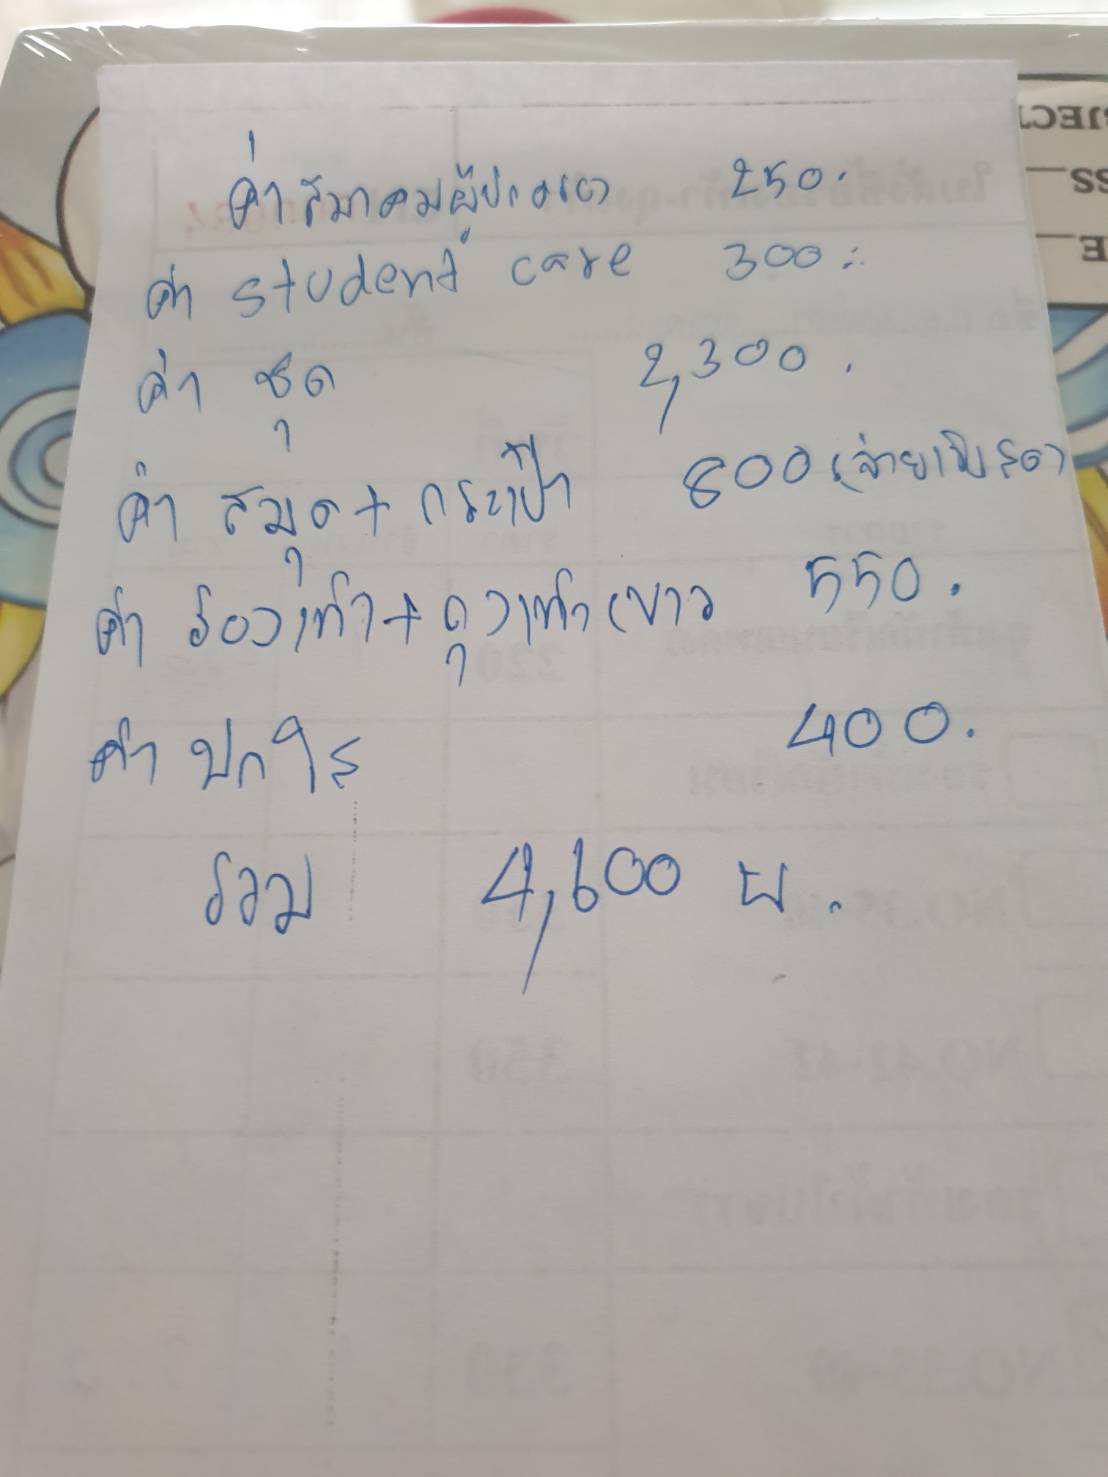 ค่าสมาคมผู้ปกครอง 250.
ค่า student care 300.-
ค่า ชุด 2,300.
ค่า สมุด + กระเป๋า 800 (จ่ายเงินสด)
ค่า รองเท้า + ถุงเท้าขาว 550.
ค่า ปกใส 400.
รวม 4,600 บ.